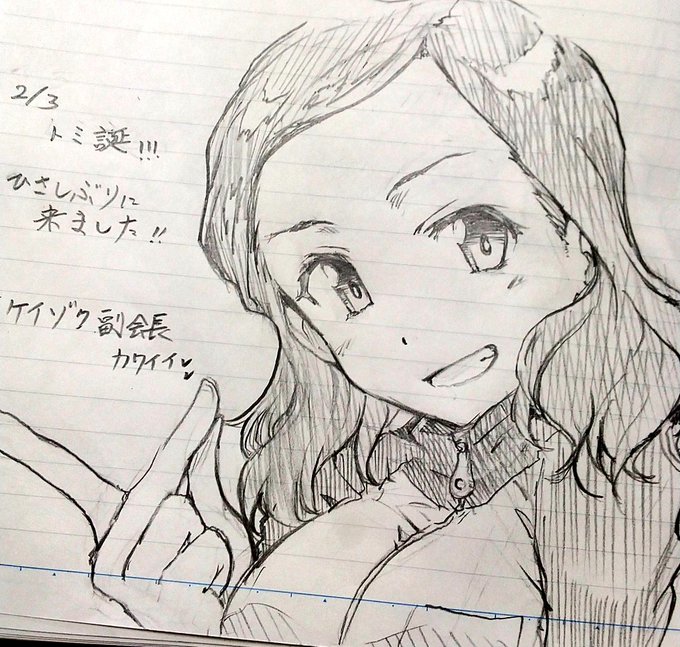 2/3
トミ誕!!!
ひさしぶりに
来ました!!
ケイゾク副会長
カワイイ♥♥